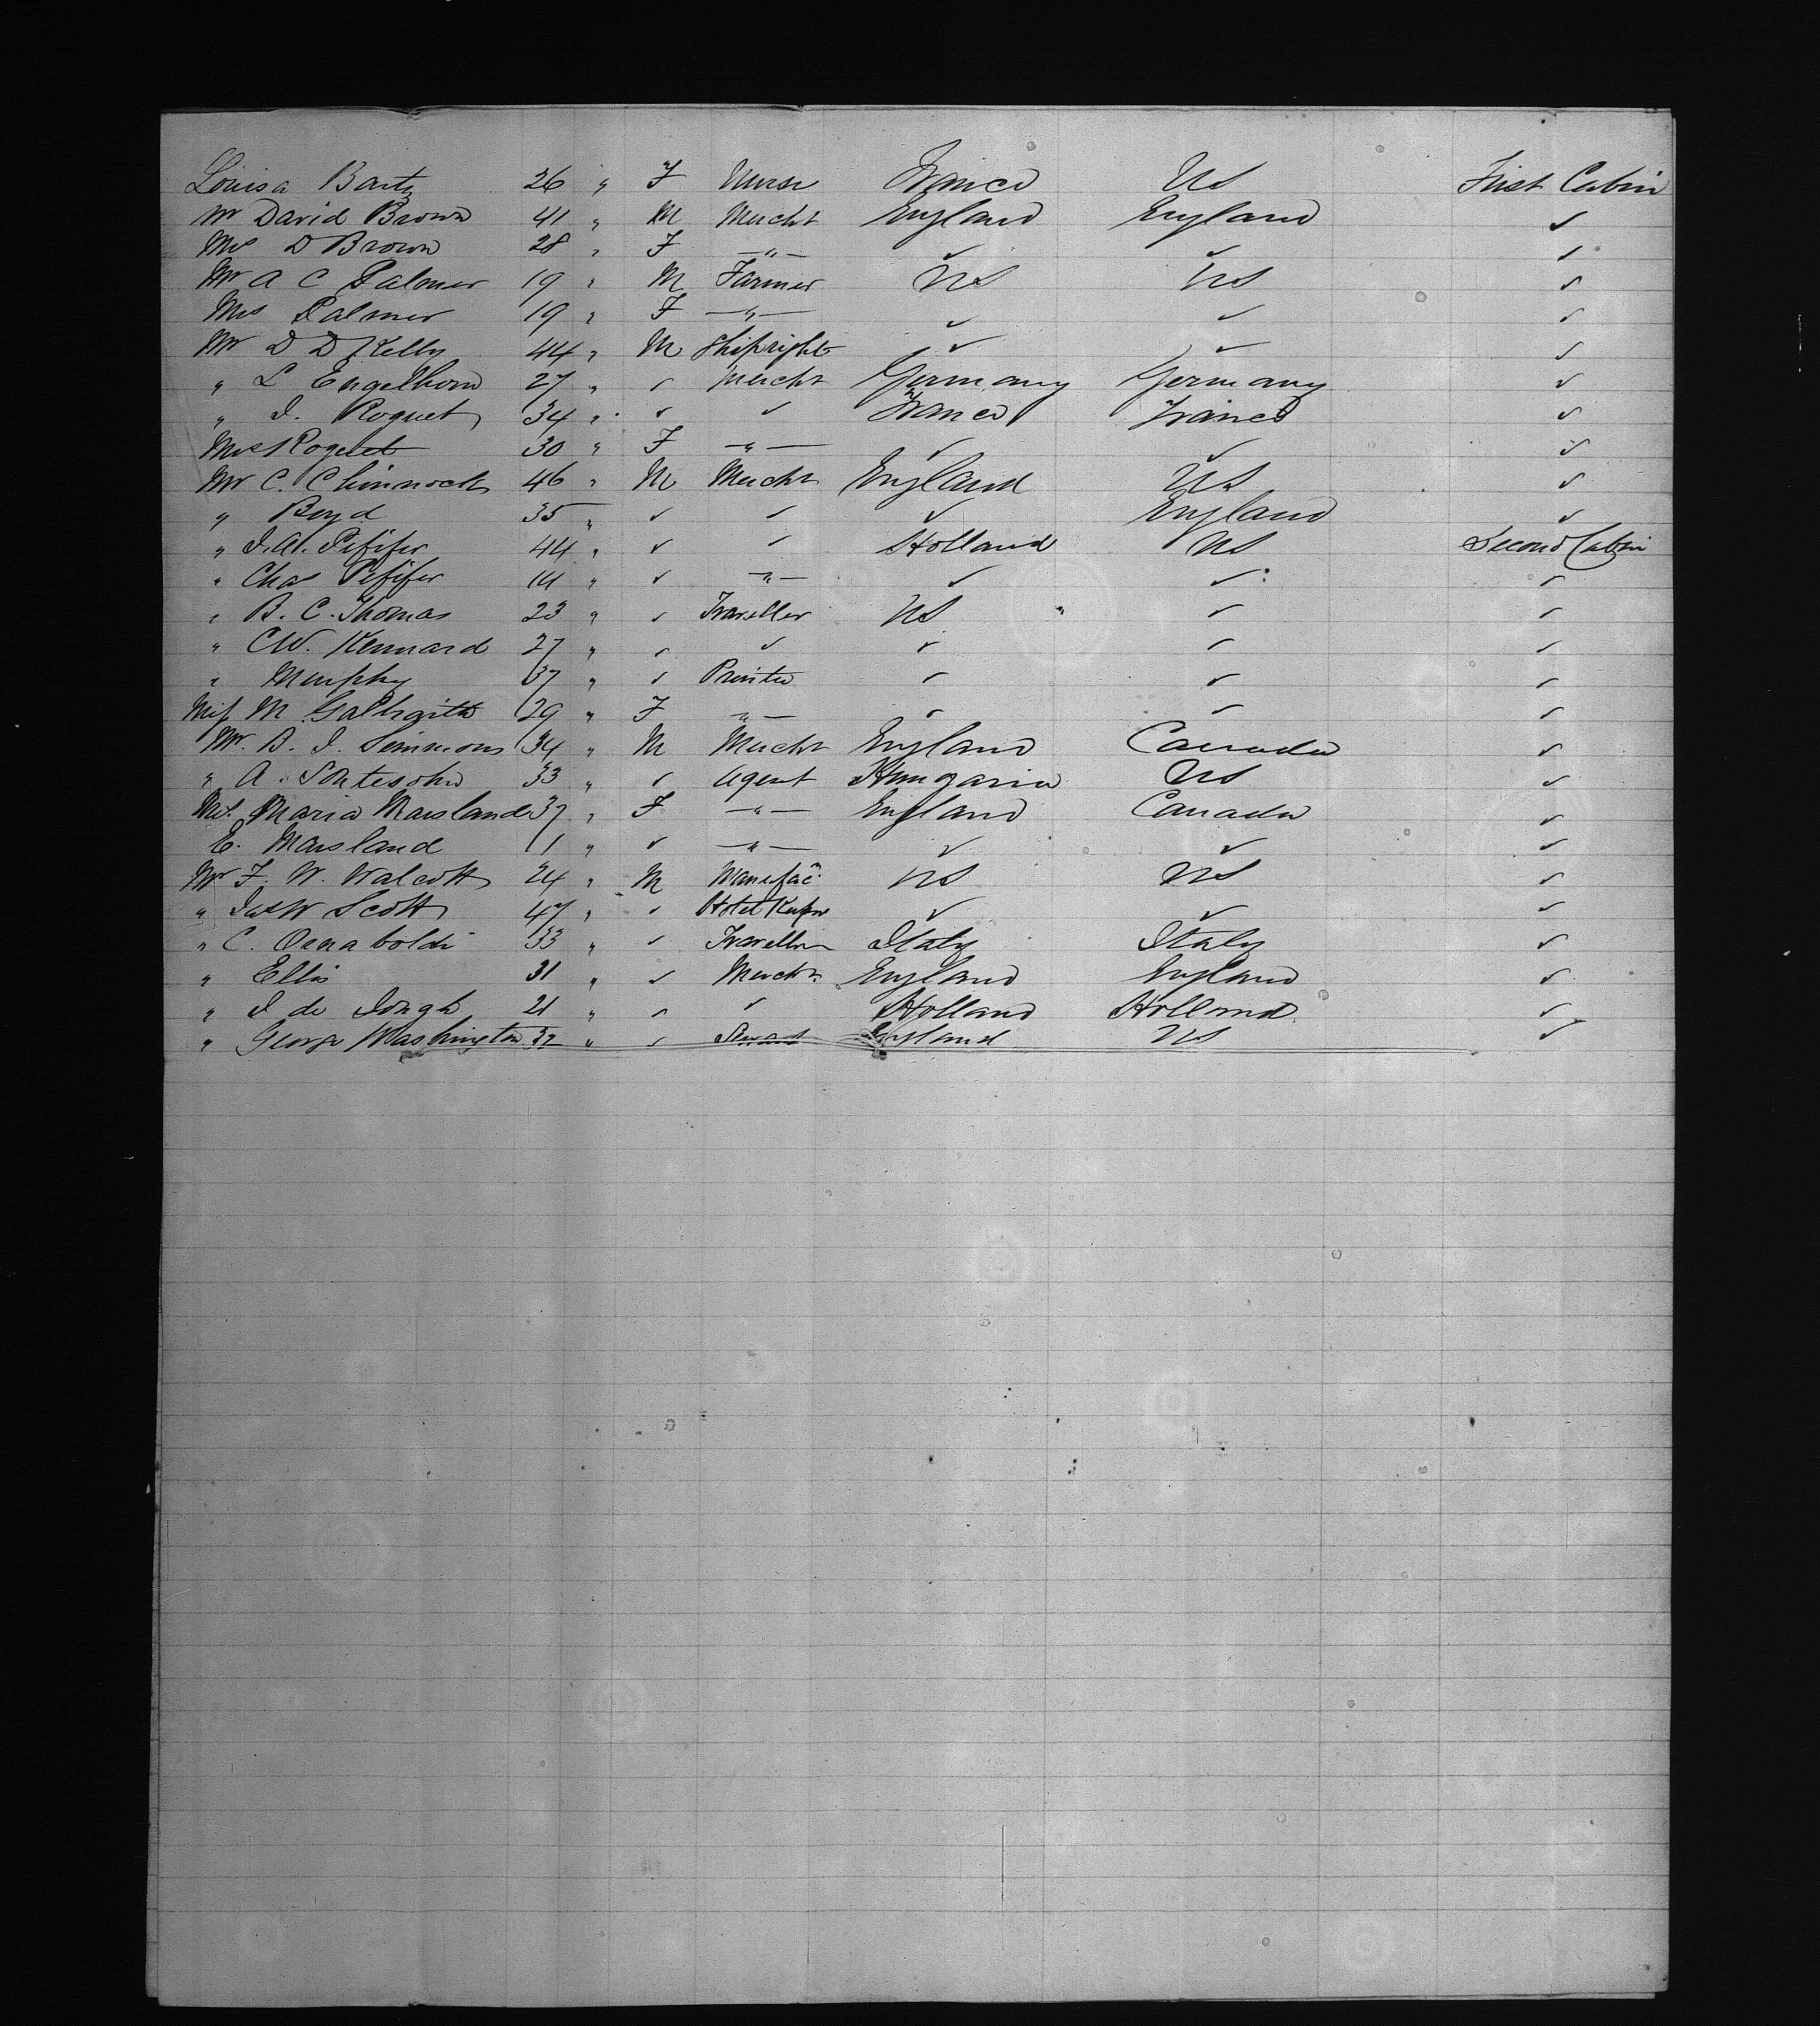 Louisa Bartz 26 " F Nurse France US First Cabin
Mr David Brown 41 " M Mercht England England ✓
Mrs D Brown 28 " F —"— ✓ ✓ ✓
Mr A C Palmer 19 " M Farmer US US ✓
Mrs Palmer 19 " F —"— ✓ ✓ ✓
Mr D D Kelly 44 " M Shipright ✓ ✓ ✓
" L Engelhorn 27 " ✓ Mercht Germany Germany ✓
" J. Roquet 34 " ✓ ✓ France France ✓
Mrs Roquet 30 " F —"— ✓ ✓ ✓
Mr C. Chinnock 46 " M Mercht England US ✓
" Boyd 35 " ✓ ✓ ✓ England ✓
" J.A. Pfifer 44 " ✓ ✓ Holland US Second Cabin
" Chas Pfifer 14 " ✓ —"— ✓ ✓ ✓
" B. C. Thomas 23 " ✓ Traveller US " ✓ ✓
" C.W. Kennard 27 " ✓ ✓ ✓ ✓ ✓
" Murphy 37 " ✓ Printer ✓ ✓ ✓
Miss M Galbraith 29 " F —"— ✓ ✓ ✓
Mr. B. J. Simmons 34 " M Mercht England Canada ✓
" A. 33 " ✓ Agent Hungaria US ✓
Maria Marsland 37 " F —"— England Canada ✓
E. Marsland 11 " ✓ —"— ✓ ✓ ✓
Mr F. W. Walcott 24 " M Manufac US US ✓
" Jas W Scott 47 " ✓ Hotel Keeper ✓ ✓ ✓
" C. Ornaboldi 33 " ✓ Traveller Italy Italy ✓
" Ellis 31 " ✓ Mercht England England ✓
" J de Jongh 21 " ✓ ✓ Holland Holland ✓
" George Washington 32 " ✓ England US ✓